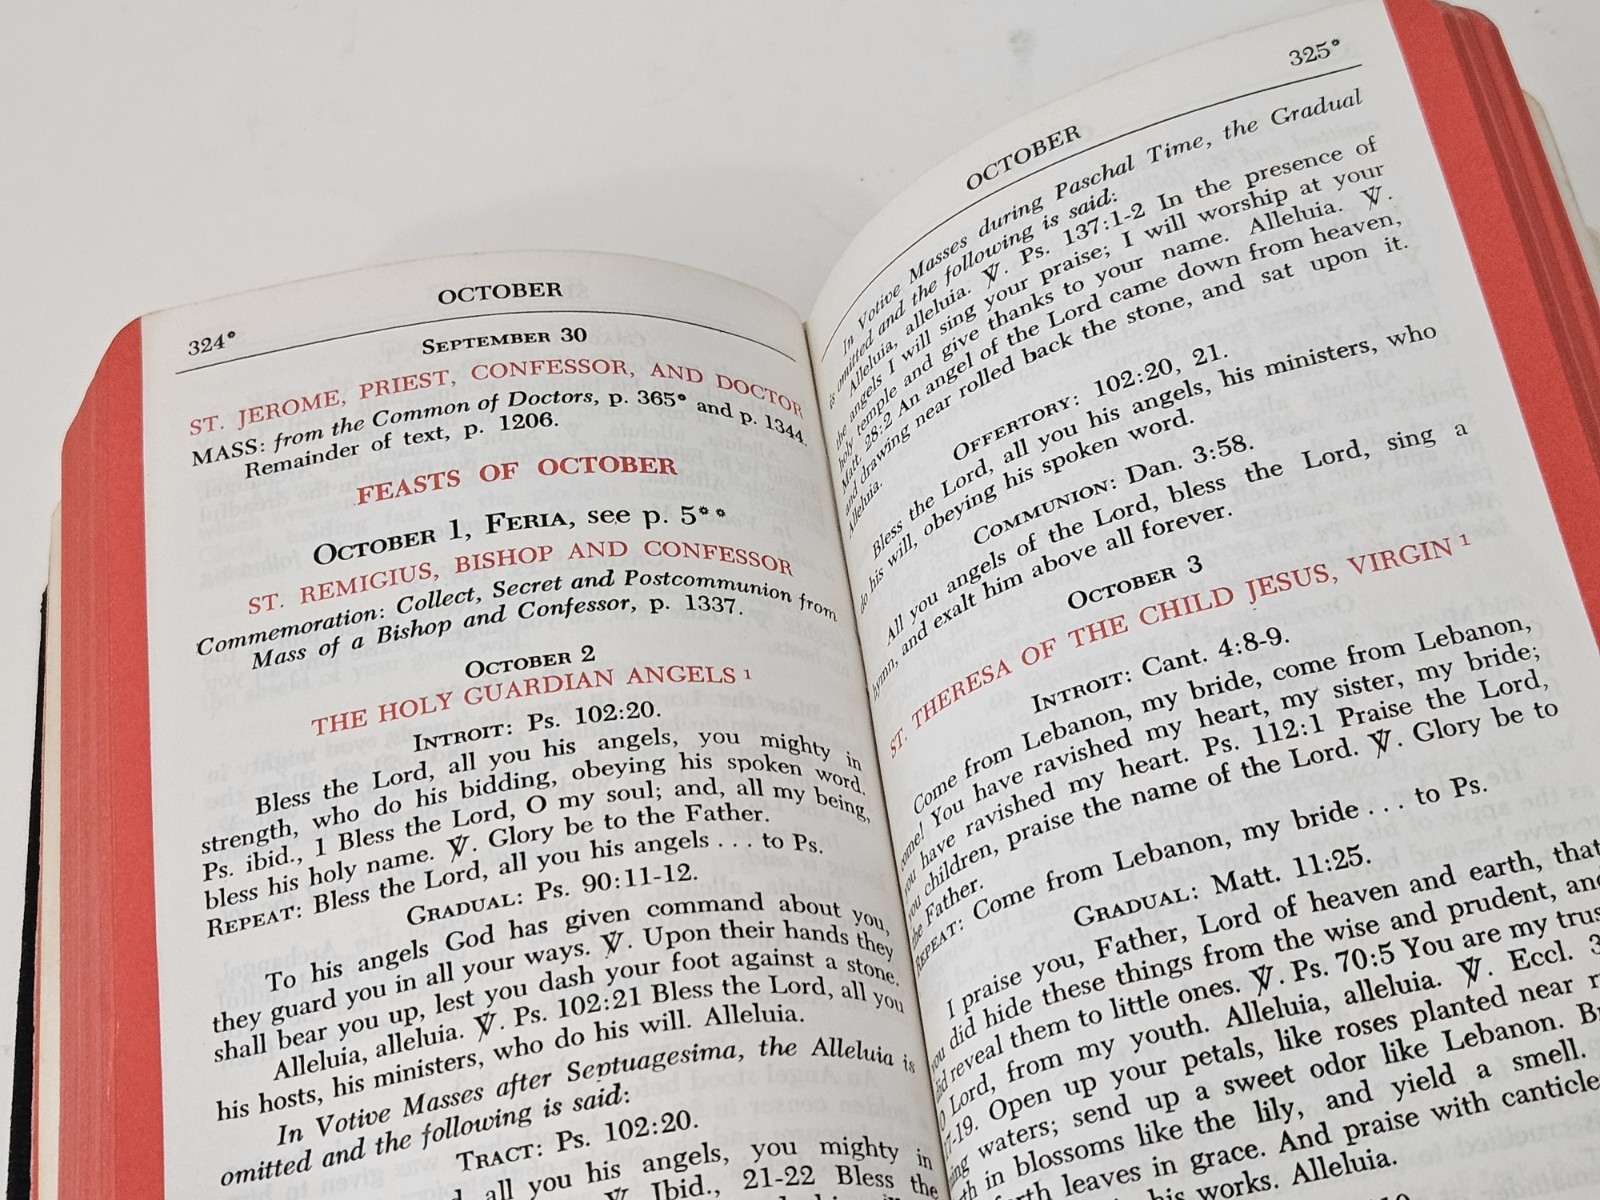 324*
OCTOBER
SEPTEMBER 30
ST. JEROME, PRIEST, CONFESSOR, AND DOCTOR
MASS: from the Common of Doctors, p. 365* and p. 1344.
Remainder of text, p. 1206.
FEASTS OF OCTOBER
OCTOBER 1, FERIA, see p. 5**
ST. REMIGIUS, BISHOP AND CONFESSOR
Commemoration: Collect, Secret and Postcommunion from
Mass of a Bishop and Confessor, p. 1337.
OCTOBER 2
THE HOLY GUARDIAN ANGELS 1
INTROIT: Ps. 102:20.
Bless the Lord, all you his angels, you mighty in
strength, who do his bidding, obeying his spoken word.
Ps. ibid., 1 Bless the Lord, O my soul; and, all my being,
bless his holy name. ℣. Glory be to the Father.
REPEAT: Bless the Lord, all you his angels . . . to Ps.
GRADUAL: Ps. 90:11-12.
To his angels God has given command about you,
they guard you in all your ways. ℣. Upon their hands they
shall bear you up, lest you dash your foot against a stone.
Alleluia, alleluia. ℣. Ps. 102:21 Bless the Lord, all you
his hosts, his ministers, who do his will. Alleluia.
In Votive Masses after Septuagesima, the Alleluia is
omitted and the following is said:
TRACT: Ps. 102:20.
all you his angels, you mighty in
℣. Ibid., 21-22 Bless the
OCTOBER
325*
In Votive Masses during Paschal Time, the Gradual
is omitted and the following is said:
Alleluia, alleluia. ℣. Ps. 137:1-2 In the presence of
the angels I will sing your praise; I will worship at your
holy temple and give thanks to your name. Alleluia. ℣.
Matt. 28:2 An angel of the Lord came down from heaven,
and drawing near rolled back the stone, and sat upon it.
Alleluia.
OFFERTORY: 102:20, 21.
Bless the Lord, all you his angels, his ministers, who
do his will, obeying his spoken word.
COMMUNION: Dan. 3:58.
All you angels of the Lord, bless the Lord, sing a
hymn, and exalt him above all forever.
OCTOBER 3
ST. THERESA OF THE CHILD JESUS, VIRGIN 1
INTROIT: Cant. 4:8-9.
Come from Lebanon, my bride, come from Lebanon,
come! You have ravished my heart, my sister, my bride;
you have ravished my heart. Ps. 112:1 Praise the Lord,
you children, praise the name of the Lord. ℣. Glory be to
the Father.
REPEAT: Come from Lebanon, my bride . . . to Ps.
GRADUAL: Matt. 11:25.
I praise you, Father, Lord of heaven and earth, that
you did hide these things from the wise and prudent, and
did reveal them to little ones. ℣. Ps. 70:5 You are my
O Lord, from my youth. Alleluia, alleluia. ℣. Eccl.
Open up your petals, like roses planted near
waters; send up a sweet odor like Lebanon.
in blossoms like the lily, and yield a smell.
leaves in grace. And praise with
his works. Alleluia.